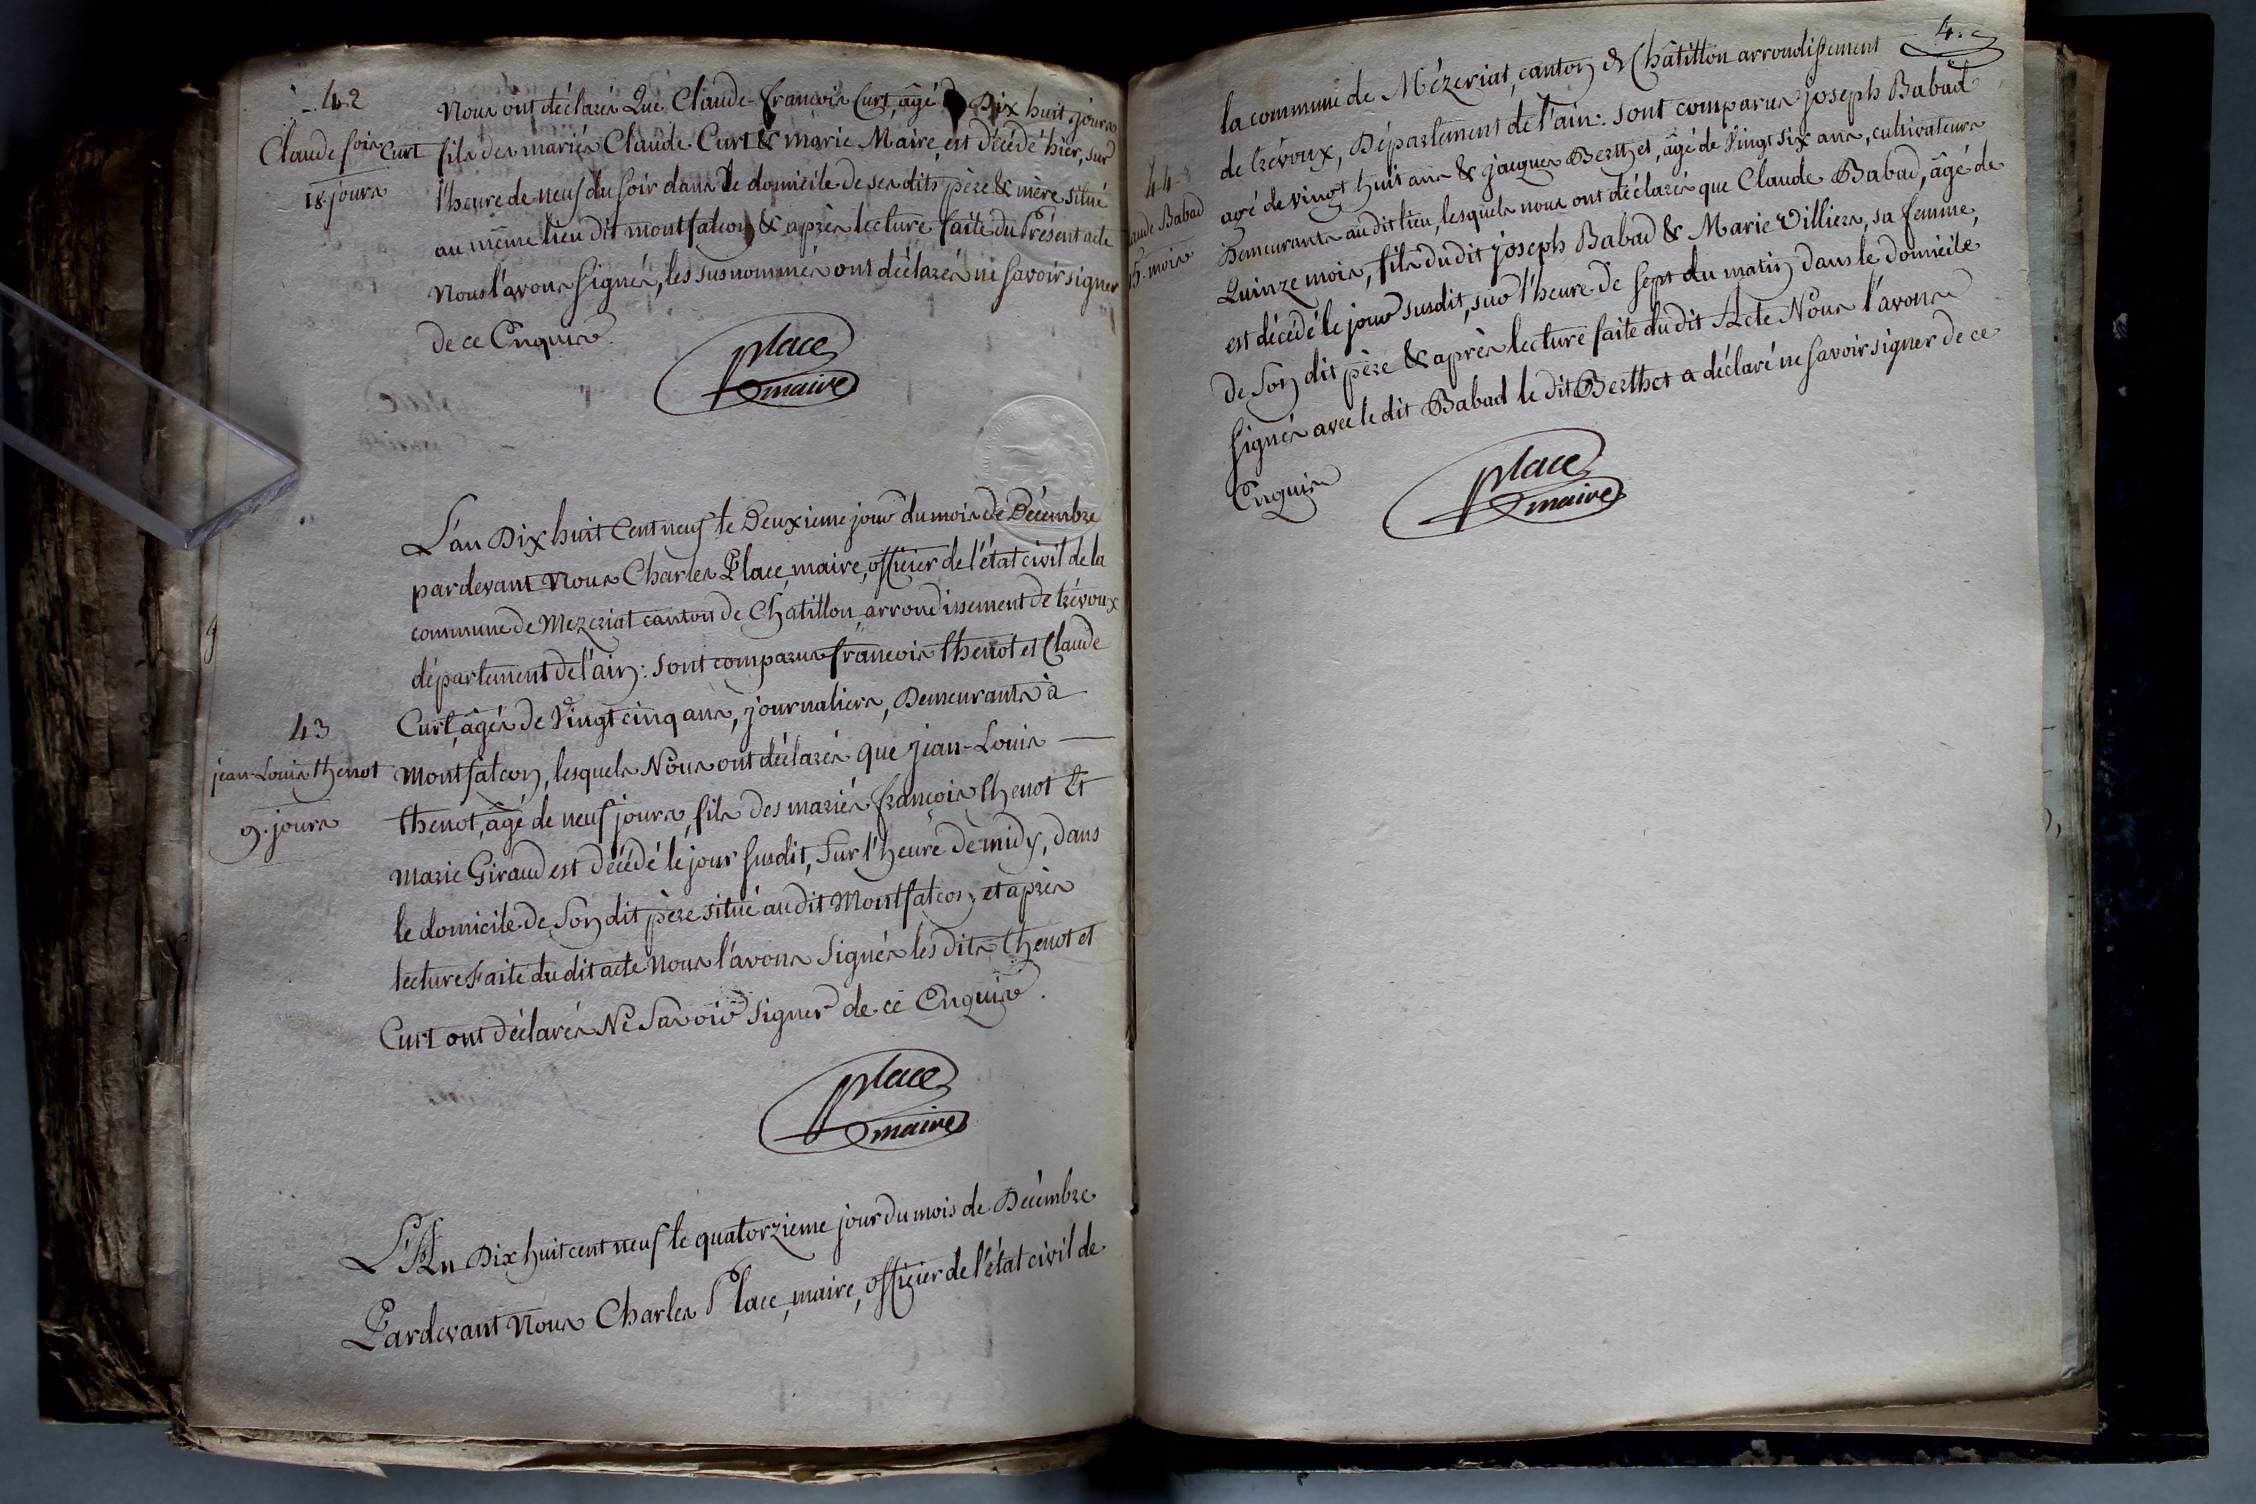 42
Claude fois Curt
18. jours
Nous ont déclarés Que Claude-francois Curt, âgé Dix huit jours
fils des mariés Claude Curt & marie Maire, est décédé hier, sur
l'heure de neuf du soir dans le domicile de ses dits père & mère situé
au même lieu dit montfalcon & après lecture faite du Présent acte
Nous l'avons signés, les susnommés ont déclarés ne savoir signer
de ce Enquis.
place
maire
L'an Dix huit Cent neuf le Deuxieme jour du mois de Décembre
pardevant Nous Charles Place, maire, officier de l'état civil de la
commune de Mezeriat canton de Chatillon, arrondissement de trévoux
département de l'ain: sont comparus francois thenot et Claude
Curt, âgés de Vingt cinq ans, journaliers, Demeurants à
43
jean-Louis thenot
9. jours
Montfalcon, lesquels Nous ont déclarés que jean-Louis —
thenot, âgé de neuf jours, fils des mariés françois thenot Et
Marie Giraud est décédé le jour susdit, Sur l'heure de midy, dans
le domicile de Son dit père situé audit Montfalcon, et après
lecture Faite du dit acte Nous l'avons Signés les dits thenot et
Curt ont déclarés Ne Savoir Signer de ce Enquis.
place
maire
L'An Dix huit cent neuf le quatorzieme jour du mois de Décembre
Pardevant Nous Charles Place, maire, officier de l'état civil de
la commune de Mézeriat, canton de Châtillon arrondissement
de trévoux, Département de l'ain: sont comparus joseph Babad
44
aude Babad
15. mois
agé de vingt huit ans & jacques Berthet, âgé de Vingt six ans, cultivateurs
Demeurants audit lieu, lesquels nous ont déclarés que Claude Babad, âgé de
Quinze mois, fils dudit joseph Babad & Marie Villiers, sa femme,
est décédé le jour susdit, sur l'heure de Sept du matin dans le domicile
de Son dit père & après lecture faite du dit Acte Nous l'avons
signés avec le dit Babad le dit Berthet a déclaré ne savoir signer de ce
Enquis
place
maire